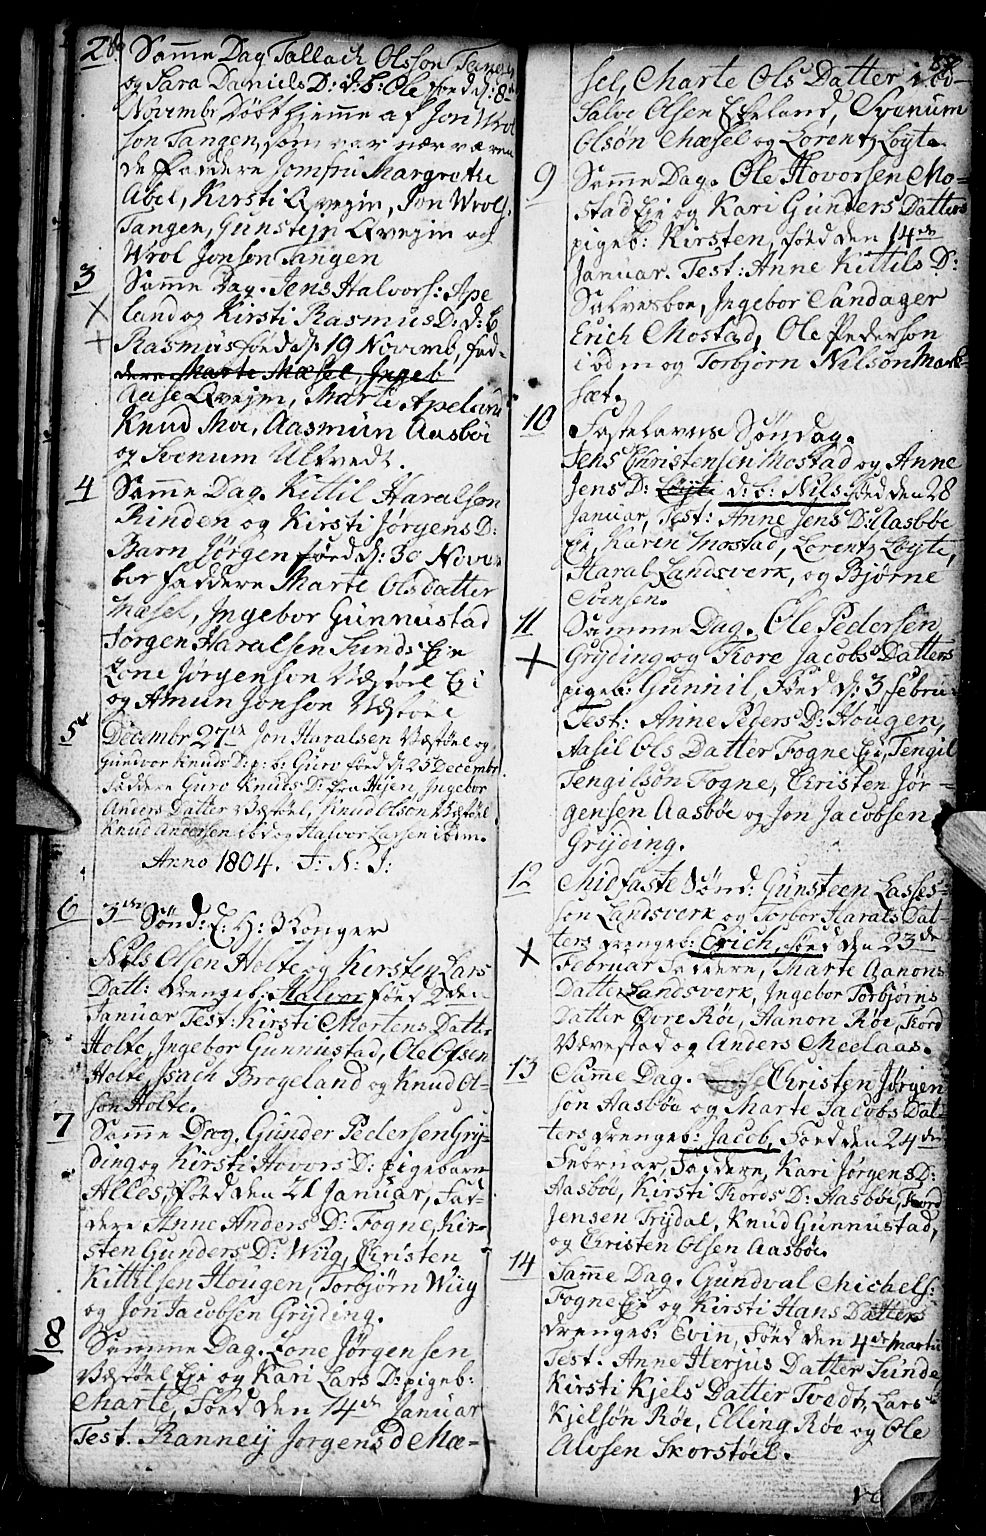 28
Samme Dag Tallach Olsson Tangen
og Sara Daniels D: d: b: Ole föed d: 8de
Novembr Döbt hjemme af Jon Wrol
son Tangen, som var nærværen
de Faddere Jomfru Margrethe
Abel, Kirsti Qvejm, Jon Wrols:
Tangen, Gunstejn Qvejm og
Wrol Jonson Tangen
3
Samme Dag. Jens Halvors: Ape
land og Kirsti Rasmus D: d: b
Rasmus föed d: 19 Novemb, fad-
dere Marte Mæsel, Ingeb
Aase Qvejm, Marte Apeland
Knud Moe, Aasmun Aasböe
og Svenum Ultvedt.
4
Samme Dag. Kittil Haralson
Rinden og Kirsti Jørgens D:
Barn Jørgen föed d: 30 Novem
ber Faddere Marte Olsdatter
Mæsel, Ingebor Gunnustad
Jørgen Haralsen Sunds Eje
Tone Jørgenson Væstöel Eje
og Amun Jonson Væstöel
5
Decembr 27de Jon Haralsen Væstöel og
Gundvor Knuds D: p: b: Guro föed d: 25 Decembr
Faddere Guro Knuds D: Hejen, Ingebor
Anders Datter Væstöel, Knud Olson Væstöel
Knud Andersen ibd og Halvor Larsen ibdm.
Anno 1804. J: N: J:
6
3die Sönd: E: H: 3 Konger
Nils Olsen Holte og Kirsten Lars
Datt: drengeb: Halvor föed 2den
Januar Test: Kirsti Mortens Datter
Holte, Ingebor Gunnustad, Ole Olsen
Holte, Isach Brogeland og Knud Ol-
son Holte.
7
Samme Dag, Gunder Pedersen Grÿ-
ding og Kirsti Hovors D: pigebarn
Alles, föed den 21 Januar, Fad-
dere Anne Anders D: Fogne, Kir-
sten Gunders D: Wiig, Christen
Kittilsen Hougen, Torbjørn Wiig
og Jon Jacobsen Grÿding.
8
Samme Dag. Tone Jørgensen
Væstöel Eje og Kari Lars D: pigeb:
Marte, Föed den 14de Januar
Test. Rannej Jørgens d Mæ-
sel, Marte Ols Datter ibd
Salve Olsen Eskeland, Svenum
Olsøn Mæsel og Lorentz Løyte.
9
Samme Dag. Ole Hovorsen Mo-
stad Eje og Kari Gunders Datters
pigeb: Kirsten, föed den 14de
Januar. Test: Anne Kittils D:
Salvesboe, Ingebor Sandager
Erich Mostad, Ole Pederson
ibdm og Torbjørn Nilson Mark-
sæt.
10
Fastelavns Søndag.
Jens Christensen Mostad og Anne
Jens D: d: b: Nils föed den 28
Januar, Test: Anne Jens D: Aasböe
Eje, Karen Mostad, Lorentz Løyte,
Haral Landsverk, og Bjørne
Evensen.
11
Samme Dag. Ole Pedersen
Grÿding og Tore Jacobs Datters
pigeb: Gunnil, Föed d: 3 Februar
Test: Anne Peders D: Hougen,
Aasil Ols Datter Fogne Eje, Tengil
Tengilsøn Fogne, Christen Jør-
gensen Aasböe og Jon Jacobsen
Grÿding.
12
Midfaste Sønd: Gunsteen Lasses-
son Landsverk og Torbor Harals Dat-
ters drengeb: Erich, föed den 23de
Februar Faddere, Marte Aanons
Datter Landsverk, Ingebor Torbjørns
Datter Øvre Röe, Aanon Röe, Tord
VæVestad og Anders Meelaas.
13
Samme Dag. Christen Jørgen
son Aasböe og Marte Jacobs Dat-
ters drengeb: Jacob, Föed den 24de
Februar, Faddere, Kari Jørgens D:
Aasböe, Kirsti Tords D: Aasböe, Tord
Jensen Trÿdal, Knud Gunnustad,
og Christen Olsen Aasböe.
14
Samme Dag. Gundval Michels:
Fogne Eje og Kirsti Hans Datters
drengeb: Evin, Föed den 4de Martii
Test. Anne Herjus Datter Sunde
Kirsti Kjels Datter Tvedt, Lars
Kjelsøn Röe, Elling Röe og Ole
Alvsen Skorstöel.